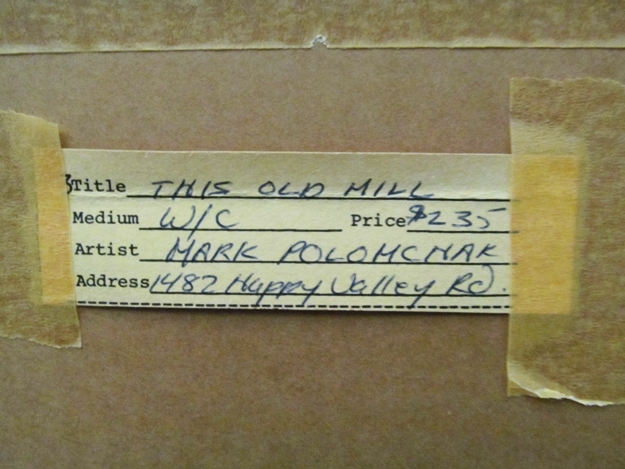 Title THIS OLD MILL
Medium W/C Price $235
Artist MARK POLOMCHAK
Address 1482 Happy Valley Rd.